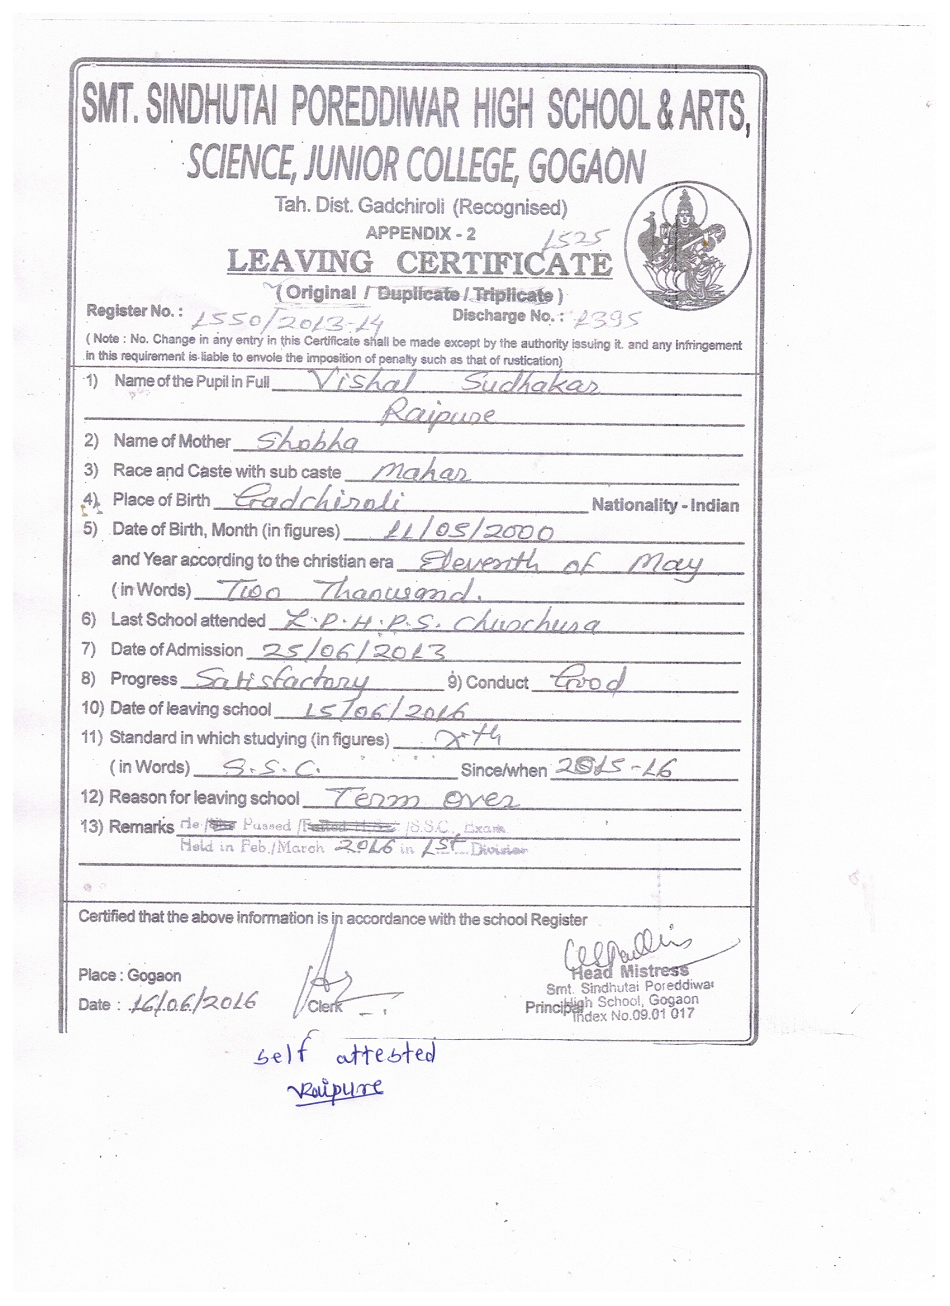 SMT. SINDHUTAI POREDDIWAR HIGH SCHOOL & ARTS,
SCIENCE, JUNIOR COLLEGE, GOGAON
Tah. Dist. Gadchiroli (Recognised)
APPENDIX - 2
1525
LEAVING CERTIFICATE
(Original / Duplicate / Triplicate )
Register No. : 1550/2013-14 Discharge No. : 1395
( Note : No. Change in any entry in this Certificate shall be made except by the authority issuing it. and any Infringement
in this requirement is liable to envole the imposition of penalty such as that of rustication)
1) Name of the Pupil in Full Vishal Sudhakar
Raipure
2) Name of Mother Shobha
3) Race and Caste with sub caste Mahar
4) Place of Birth Gadchiroli Nationality - Indian
5) Date of Birth, Month (in figures) 11/05/2000
and Year according to the christian era Eleventh of May
( in Words) Two Thousand.
6) Last School attended Z.P.H.P.S. Churchura
7) Date of Admission 25/06/2013
8) Progress Satisfactory 9) Conduct Good
10) Date of leaving school 15/06/2016
11) Standard in which studying (in figures) Xth
( in Words) S.S.C. Since/when 2015-16
12) Reason for leaving school Term over
13) Remarks He /She Passed /Failed H.S.C /S.S.C., Exam
Held in Feb./March 2016 in 1st Division
Certified that the above information is in accordance with the school Register
Place : Gogaon
Head Mistress
Smt. Sindhutai Poreddiwar
Date : 16/06/2016 Clerk Principal High School, Gogaon
Index No.09.01 017
self attested
Raipure